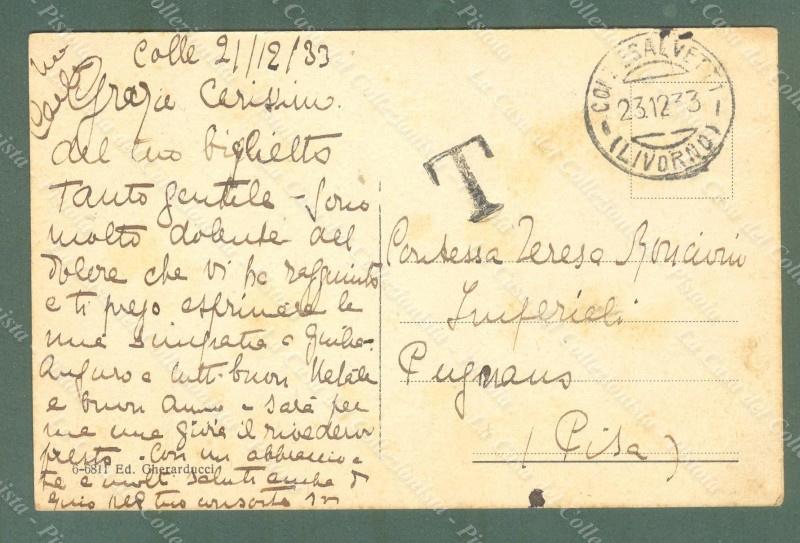 Colle 21/12/33
Grazie Carissimo
del tuo biglietto
tanto gentile - Sono
molto dolente del
dolore che vi ha raggiunto
e ti prego esprimere la
mia simpatia a Giulia -
Auguro a tutti buon Natale
e buon Anno - sarà per
me una gioia il rivedervi
presto - Con un abbraccio a
te e molti saluti anche di
Guio per tuo consorte
6-6811 Ed. Gherarducci
COLLESALVETTI
23.12.33
(LIVORNO)
T
Contessa Teresa Roncioni
Imperiali
Pugnano
(Pisa)
La Casa del Collezionista - Pistoia